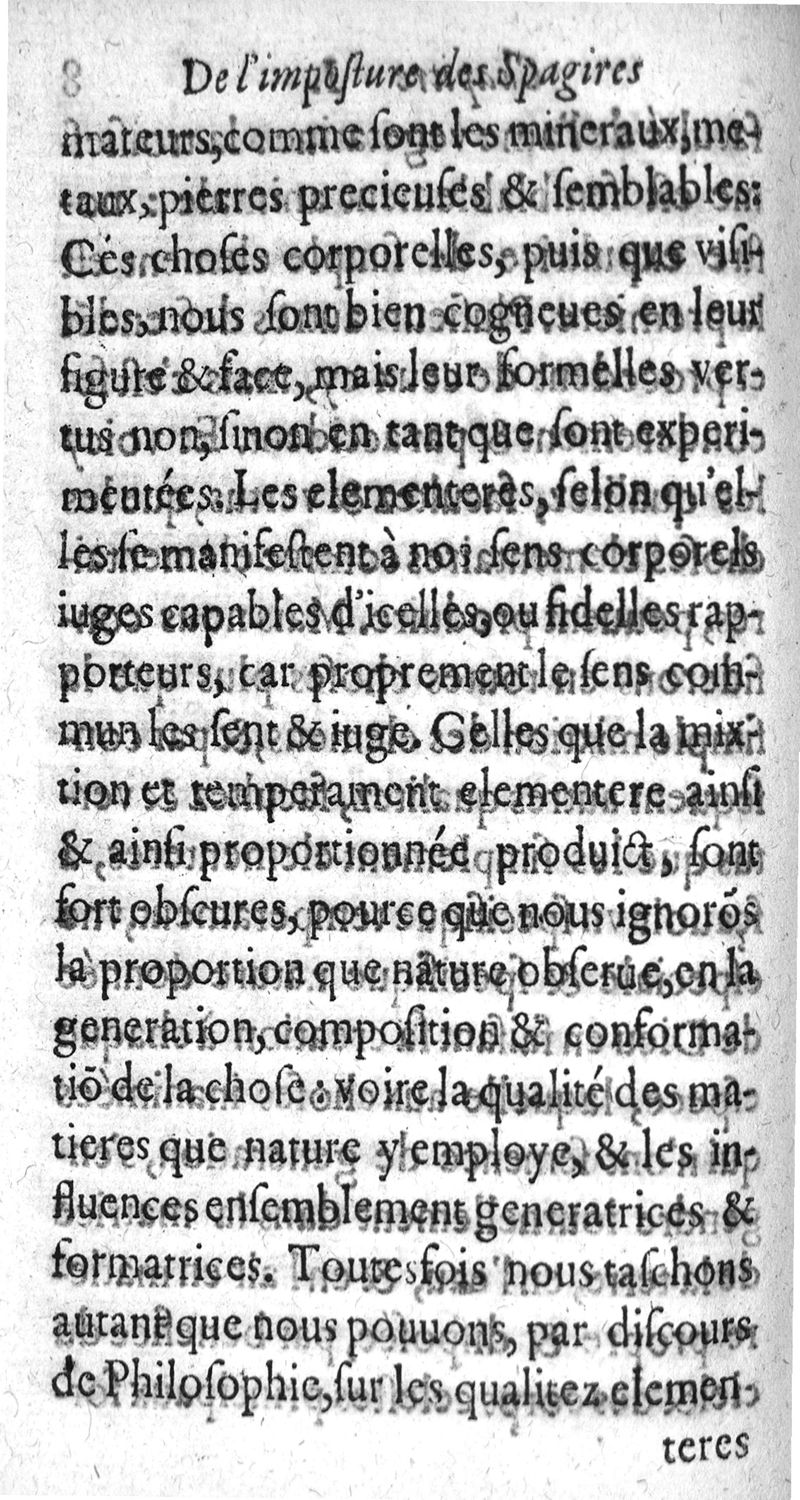 8 De l'impoſture des Spagires
mateurs, comme ſont les mineraux, me-
taux, pierres precieuſes & ſemblables:
Ces choſes corporelles, puis que viſi-
bles, nous ſont bien cogneues en leur
figure & face, mais leur formelles ver-
tus non, ſinon en tant que ſont experi-
mentées. Les elementeres, ſelon qu'el-
les ſe manifeſtent à noz ſens corporels
iuges capables d'icelles, ou fidelles rap-
porteurs, car proprement le ſens com-
mun les ſent & iuge. Celles que la mix-
tion et temperament elementere ainſi
& ainſi proportionnée produict, ſont
fort obſcures, pource que nous ignorõs
la proportion que nature obſerue, en la
generation, compoſition & conforma-
tiõ de la choſe: voire la qualité des ma-
tieres que nature y employe, & les in-
fluences enſemblement generatrices &
formatrices. Toutesfois nous taſchons
autant que nous pouuons, par diſcours
de Philoſophie, ſur les qualitez elemen-
teres